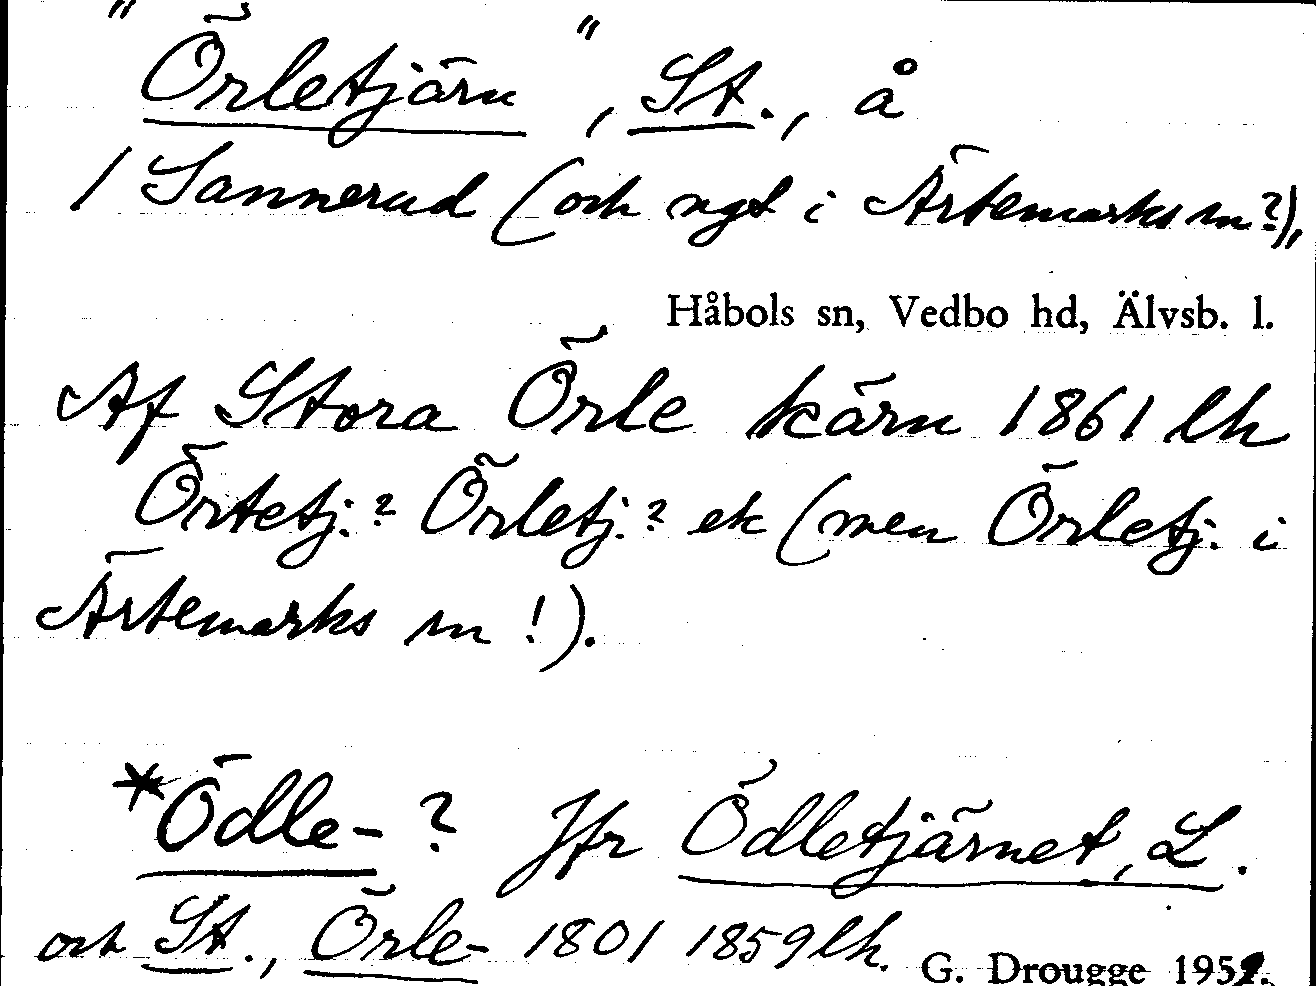 "Örletjärn", St., å
/ Sannerud (och ngt i Ärtemarks sn?),
Håbols sn, Vedbo hd, Älvsb. l.
Af Stora Örle kärn 1861 lh
Örtetj.? Örletj.? ek (men Örletj. i
Ärtemarks sn!).
*Ödle-? Jfr Ödletjärnet, L.
och St., Örle- 1801 1859 lh.
G. Drougge 1952.